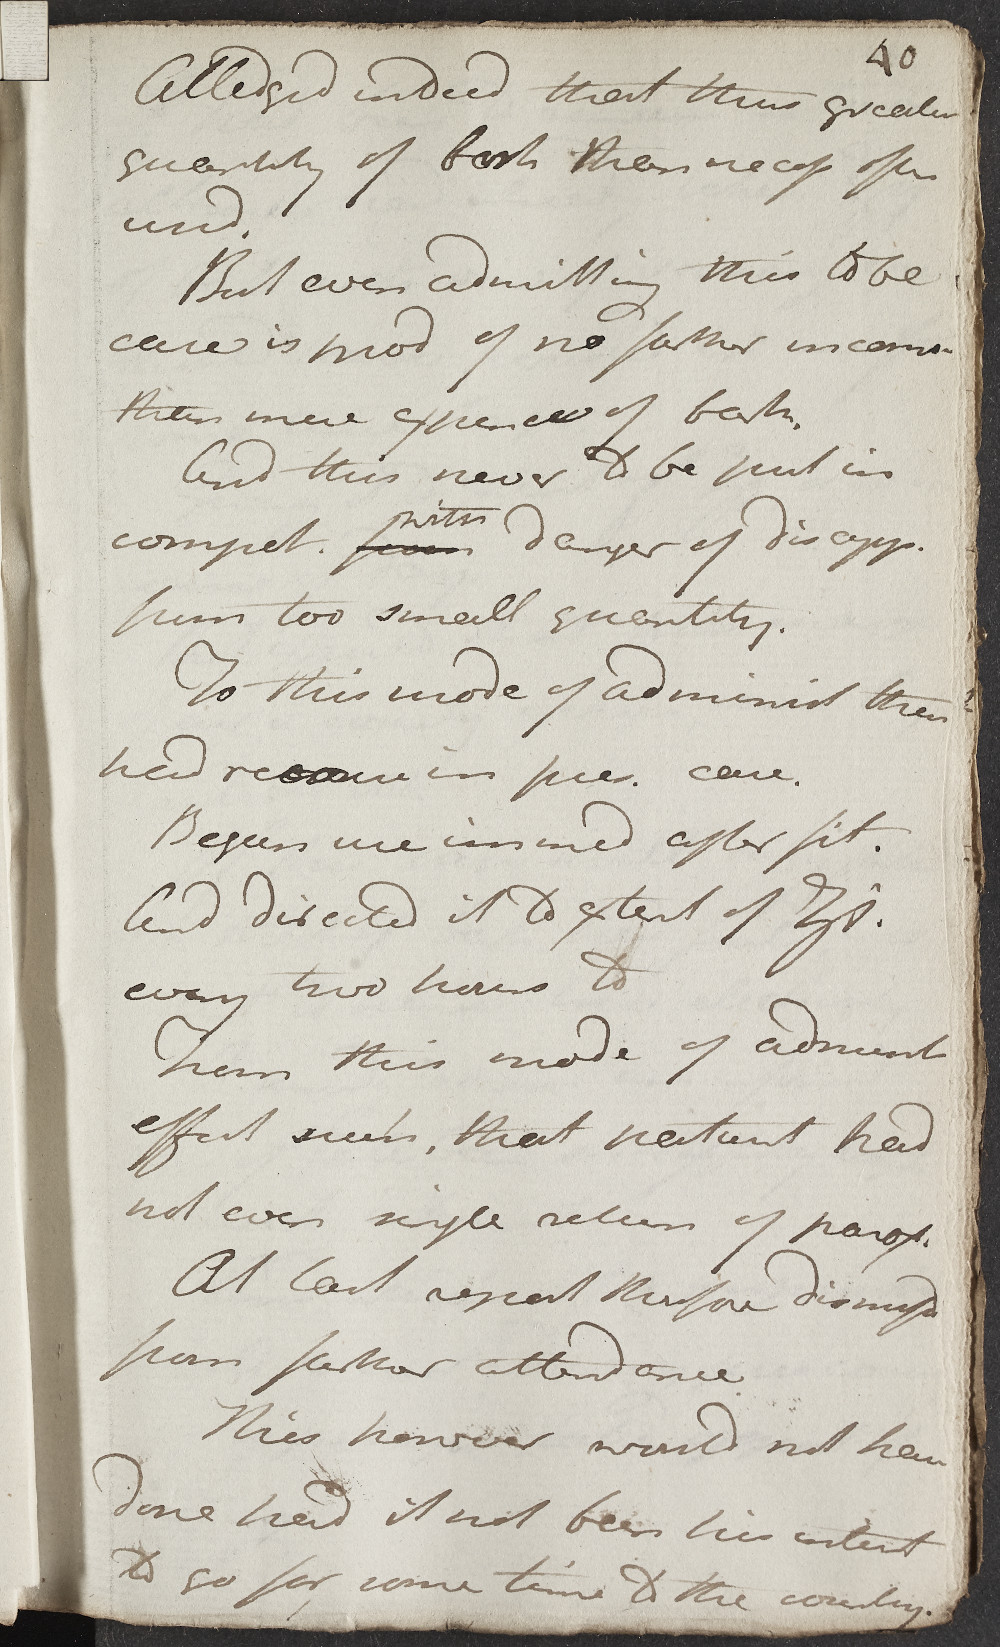 40
Alledged indeed that thus greater
quantity of bark than necess often
used.
But even admitting this to be
case is prod of no farther inconv
than mere expence of bark.
And this never to be put in
compet. with danger of disapp.
from too small quantity.
To this mode of administ then
had recourse in pres. case.
Begun use immed after fit.
And directed it to extent of ʒβ.
every two hours to
From this mode of adminst
effect such, that patient had
not even single return of parox.
At last report therefore dismissd
from farther attendance
This however would not hav
done had it not been his intent
to go for some time to the country.